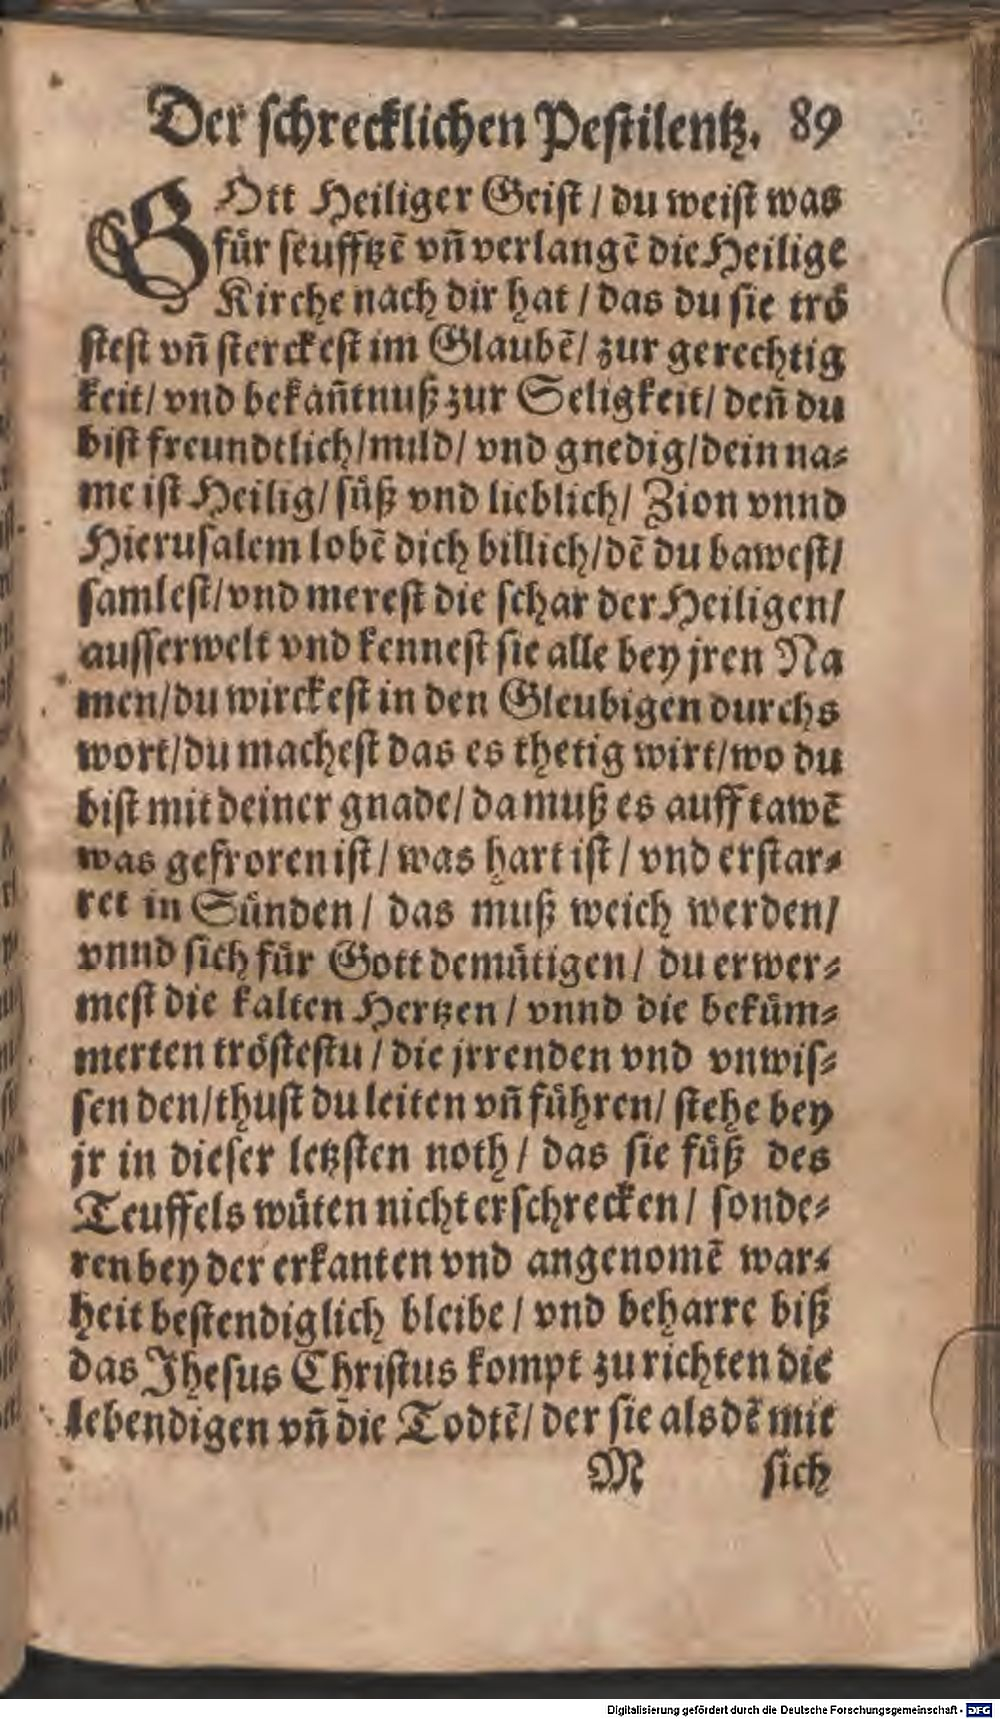 Der ſchrecklichen Peſtilentz. 89
GOtt Heiliger Geiſt / du weiſt was
für ſeufftzē vñ verlangē die Heilige
Kirche nach dir hat / das du ſie trö
ſteſt vñ ſterckeſt im Glaubē/ zur gerechtig
keit/ vnd bekañtnuß zur Seligkeit/ deñ du
biſt freundtlich/mild/ vnd gnedig/dein na⸗
me iſt Heilig/ ſüß vnd lieblich/ Zion vnnd
Hieruſalem lobē dich billich/dē du baweſt/
ſamleſt/vnd mereſt die ſchar der Heiligen/
auſſerwelt vnd kenneſt ſie alle bey jren Na
men/du wirckeſt in den Gleubigen durchs
wort/du macheſt das es thetig wirt/wo du
biſt mit deiner gnade/ da muß es auff tawē
was gefroren iſt / was hart iſt / vnd erſtar⸗
ret in Sünden / das muß weich werden/
vnnd ſich für Gott demütigen/ du erwer⸗
meſt die kalten Hertzen / vnnd die beküm⸗
merten tröſteſtu / die jrrenden vnd vnwiſ⸗
ſen den/thuſt du leiten vñ führen/ ſtehe bey
jr in dieſer letzſten noth / das ſie füß des
Teuffels wüten nicht erſchrecken / ſonde⸗
ren bey der erkanten vnd angenomē war⸗
heit beſtendiglich bleibe / vnd beharre biß
das Jheſus Chriſtus kompt zu richten die
lebendigen vñ die Todtē/ der ſie alsdē mit
M ſich
Digitalisierung gefördert durch die Deutsche Forschungsgemeinschaft - DFG